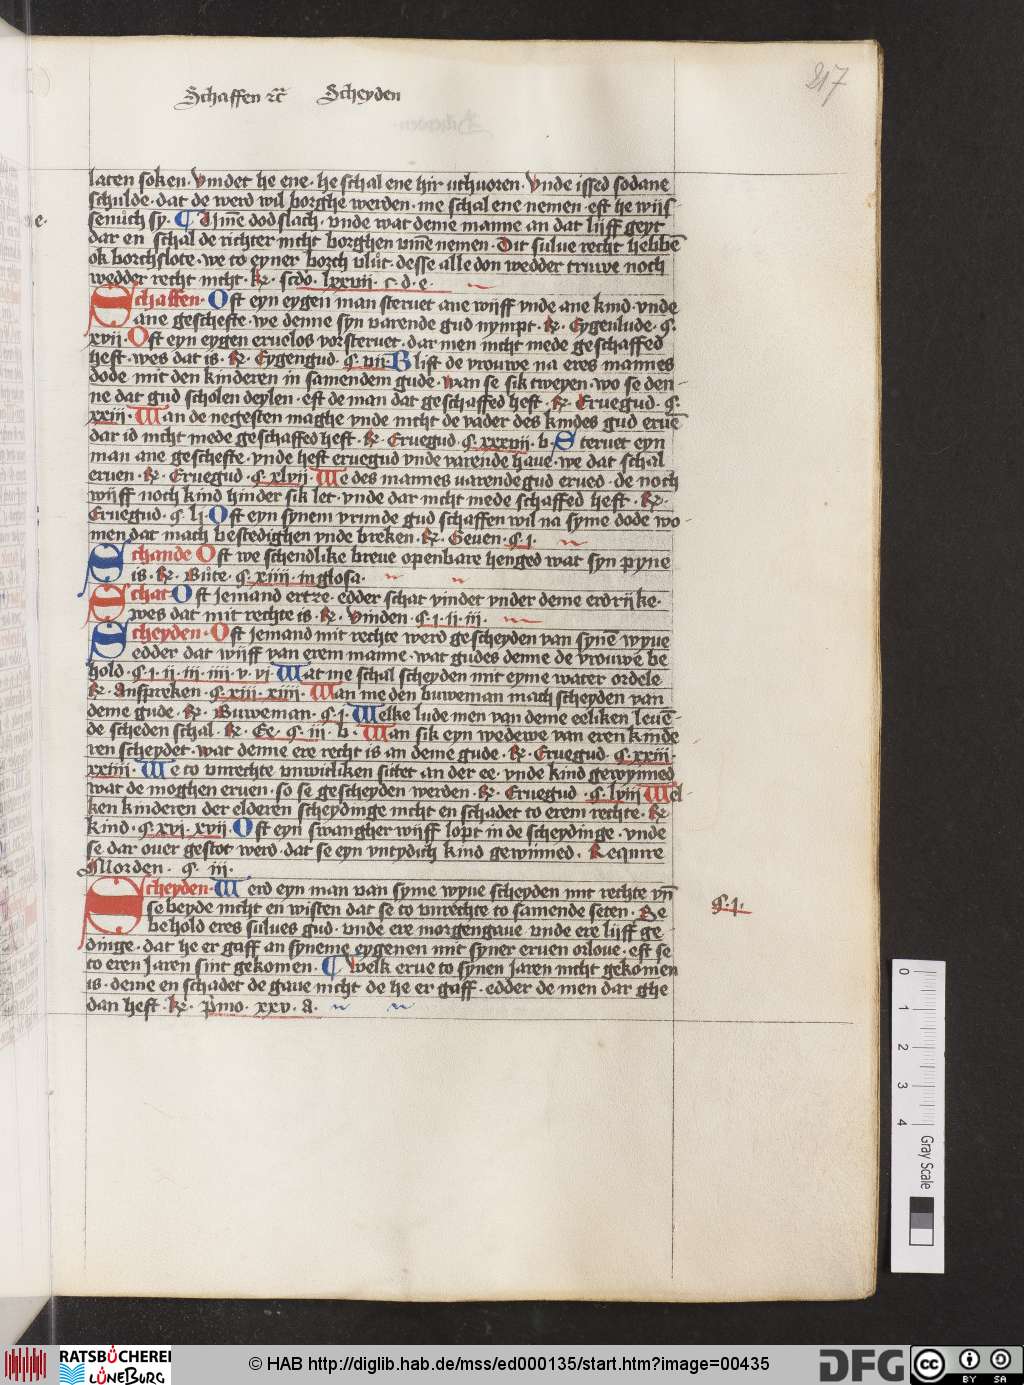 Schaffen ꝛc̄ Scheyden
217
laten soken · Vindet he ene · he schal ene hir vthuoren · Vnde issed sodane
schulde · dat de werd wil borghe werden · me schal ene nemen · est he wijs
senuch sy · ¶ Vm̄e dodslach · vnde wat deme manne an dat lijff geyt
dar en schal de richter nicht borghen vm̄e nemen · Dit sulue recht hebbē
ok borchslote · we to eyner borch vlut · desse alle don wedder truwe noch
wedder recht nicht · R · scdo · lxxvij · c · d · e ·
Schaffen · Oft eyn eygen man steruet ane wijff vnde ane kind · vnde
ane geschefte · we denne syn varende gud nympt · R · Eygenlude · ς ·
xvij · Oft eyn eygen eruelos vorsteruet · dar men nicht mede geschaffed
heft · wes dat is · R · Eygengud · ς · vij · Blift de vrouwe na eres mannes
dode mit den kinderen in samendem gude · wan se sik tweyen · wo se den-
ne dat gud scholen deylen · est de man dat geschaffed heft · R · Eruegud · ς ·
xxiij · Wan de negesten maghe vnde nicht de vader des kindes gud eruē
dar id nicht mede geschaffed heft · R · Eruegud · ς · xxxvij · b · Steruet eyn
man ane geschefte · vnde heft eruegud vnde varende haue · we dat schal
eruen · R · Eruegud · ς · xlvij · We des mannes varende gud erued · de noch
wijff noch kind hinder sik let · vnde dar nicht mede schaffed heft · R ·
Eruegud · ς · lj · Oft eyn synem vrunde gud schaffen wil na syme dode wo-
men dat mach bestedighen vnde breken · R · Geuen · ς · j ·
Schande Oft we schendlike breue openbare henged wat syn pyne
is · R · Bute · ς · xiiij · in glosa ·
Schat · Oft jemand ertze · edder schat vindet vnder deme erdrijke ·
wes dat mit rechte is · R · Vinden · ς · j · ij · iij ·
Scheyden · Oft jemand mit rechte werd gescheyden van synē wyue
edder dat wijff van erem manne · wat gudes denne de vrouwe be
hold · ς · j · ij · iij · iiij · v · vj · Wat me schal scheyden mit eyme water ordele
R · Anspreken · ς · xiij · xiiij · Wan me den buweman mach scheyden van
deme gude · R · Buweman · ς · j · Welke lude men van deme eeliken leuē-
de scheden schal · R · Ee · ς · iij · b · Wan sik eyn wedewe van eren kinde
ren scheydet · wat denne ere recht is an deme gude · R · Eruegud · ς · xxiij ·
xxiiij · We to vnrechte vnwitliken sittet an der ee · vnde kind gewynned
wat de moghen eruen · so se gescheyden werden · R · Eruegud · ς · lviij · Wel-
ken kinderen der elderen scheydinge nicht en schadet to erem rechte · R
kind · ς · xvj · xvij · Oft eyn swangher wijff lopt in de scheydinge · vnde
se dar ouer gestot werd · dat se eyn vntydich kind gewinned · Require
Morden · ς · iij ·
Scheyden · Werd eyn man van syme wyue scheyden mit rechte vn̄
se beyde nicht en wisten dat se to vnrechte to samende seten · Se
behold eres sulues gud · vnde ere morgengaue · vnde ere lijff ge
dinge · dat he er gaff an syneme eygenen mit syner eruen orloue · est se
to eren Jaren sint gekomen · ¶ Welk erue to synen Jaren nicht gekomen
is · deme en schadet de gaue nicht de he er gaff · edder de men dar ghe
dan heft · R · p̄mo · xxv · a ·
ς · j ·
e ·
0
1
2
3
4
Gray Scale
RATSBÜCHEREI
LÜNEBURG
© HAB http://diglib.hab.de/mss/ed000135/start.htm?image=00435
DFG
cc
BY SA